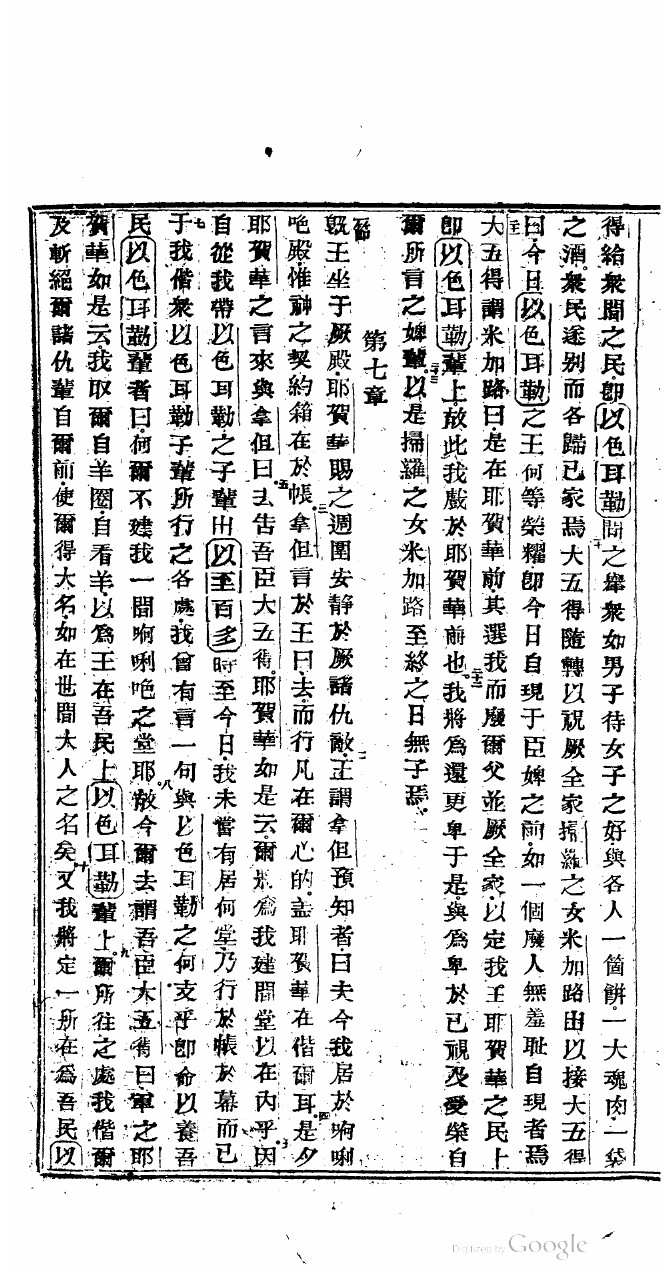 得給衆間之民卽以色耳勒間之舉衆如男子待女子之好與各人一箇餅一大塊肉一袋
之酒衆民遂别而各歸已家焉大五得隨轉以祝厥全家掃羅之女米加路出以接大五得
曰今日以色耳勒之王何等榮耀卽今日自現于臣婢之前如一個廢人無羞耻自現者焉
大五得謂米加路曰是在耶賀華前其選我而廢爾父並厥全家以定我王耶賀華之民上
卽以色耳勒輩上故此我戲於耶賀華前也我將爲還更卑于是與爲卑於已視及受榮自
爾所言之婢輩以是掃羅之女米加路至終之日無子焉
第七章
節旣王坐于厥殿耶賀華賜之週圍安静於厥諸仇敵二王謂拿但預知者曰夫今我居於㖫唎
唣殿惟神之契約箱在於帳三拿但言於王曰去而行凡在爾心的蓋耶賀華在偕爾耳四是夕
耶賀華之言來與拿但曰五去告吾臣大五得耶賀華如是云爾將爲我建間堂以在内乎因
自從我帶以色耳勒之子輩出以至百多時至今日我未嘗有居何堂乃行於帳於幕而已
七于我偕衆以色耳勒子輩所行之各處我曾有言一句與以色耳勒之何支乎卽命以養吾
民以色耳勒輩者曰何爾不建我一間㖫唎唣之堂耶八故今爾去謂吾臣大五得曰軍之耶
賀華如是云我取爾自羊圈自看羊以爲王在吾民上以色耳勒輩上九爾所往之處我偕爾
及斬絕爾諸仇輩自爾前使爾得大名如在世間大人之名矣十又我將定一所在爲吾民以
Digitized by Google